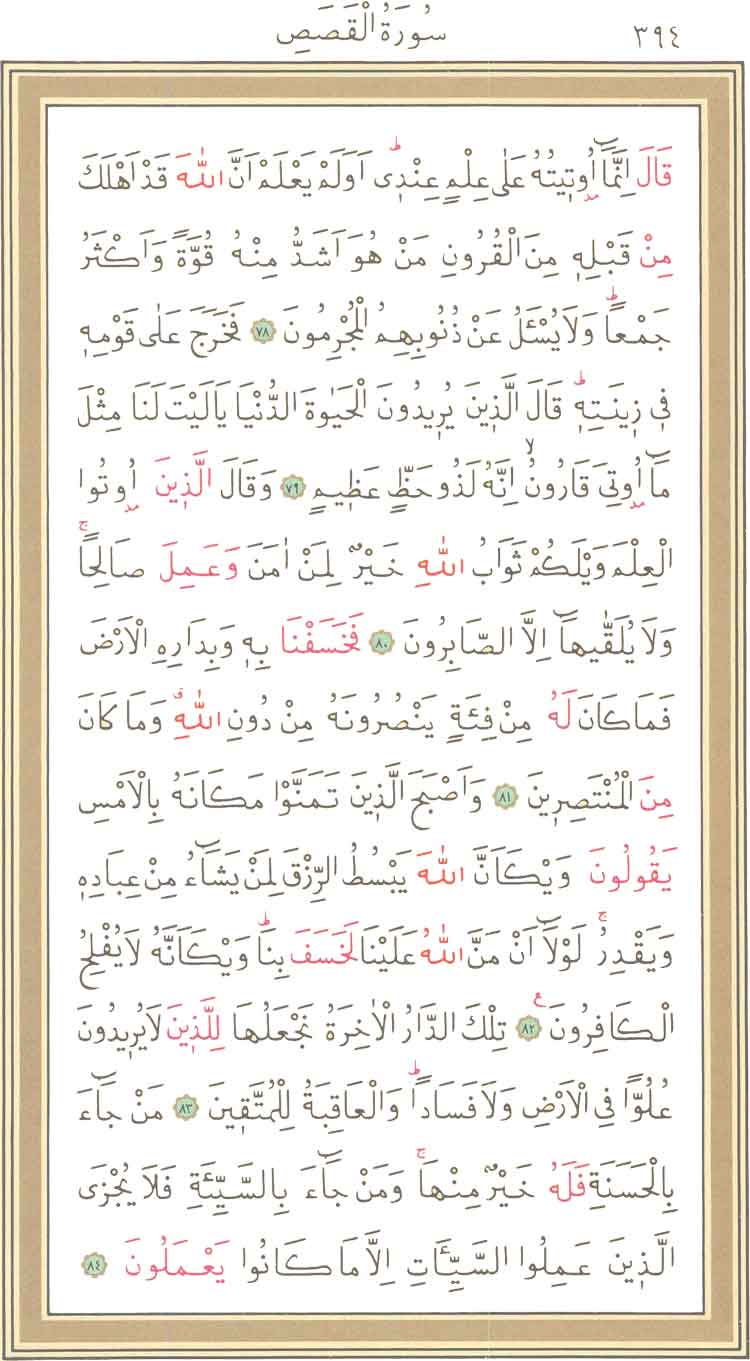 ٣٩٤ سُورَةُ الْقَصَصِ
قَالَ اِنَّمَٓا اُو۫ت۪يتُهُ عَلٰى عِلْمٍ عِنْد۪يۜ اَوَلَمْ يَعْلَمْ اَنَّ اللّٰهَ قَدْ اَهْلَكَ
مِنْ قَبْلِه۪ مِنَ الْقُرُونِ مَنْ هُوَ اَشَدُّ مِنْهُ قُوَّةً وَاَكْثَرُ
جَمْعاًۜ وَلَا يُسْـَٔلُ عَنْ ذُنُوبِهِمُ الْمُجْرِمُونَ ﴿٧٨﴾ فَخَرَجَ عَلٰى قَوْمِه۪
ف۪ي ز۪ينَتِه۪ۜ قَالَ الَّذ۪ينَ يُر۪يدُونَ الْحَيٰوةَ الدُّنْيَا يَالَيْتَ لَنَا مِثْلَ
مَٓا اُو۫تِيَ قَارُونُۙ اِنَّهُ لَذُو حَظٍّ عَظ۪يمٍ ﴿٧٩﴾ وَقَالَ الَّذ۪ينَ اُو۫تُوا
الْعِلْمَ وَيْلَكُمْ ثَوَابُ اللّٰهِ خَيْرٌ لِمَنْ اٰمَنَ وَعَمِلَ صَالِحاًۚ
وَلَا يُلَقّٰيهَٓا اِلَّا الصَّابِرُونَ ﴿٨٠﴾ فَخَسَفْنَا بِه۪ وَبِدَارِهِ الْاَرْضَ
فَمَا كَانَ لَهُ مِنْ فِئَةٍ يَنْصُرُونَهُ مِنْ دُونِ اللّٰهِۗ وَمَا كَانَ
مِنَ الْمُنْتَصِر۪ينَ ﴿٨١﴾ وَاَصْبَحَ الَّذ۪ينَ تَمَنَّوْا مَكَانَهُ بِالْاَمْسِ
يَقُولُونَ وَيْكَاَنَّ اللّٰهَ يَبْسُطُ الرِّزْقَ لِمَنْ يَشَٓاءُ مِنْ عِبَادِه۪
وَيَقْدِرُۚ لَوْلَٓا اَنْ مَنَّ اللّٰهُ عَلَيْنَا لَخَسَفَ بِنَاۜ وَيْكَاَنَّهُ لَا يُفْلِحُ
الْكَافِرُونَ۟ ﴿٨٢﴾ تِلْكَ الدَّارُ الْاٰخِرَةُ نَجْعَلُهَا لِلَّذ۪ينَ لَا يُر۪يدُونَ
عُلُوًّا فِي الْاَرْضِ وَلَا فَسَاداًۜ وَالْعَاقِبَةُ لِلْمُتَّق۪ينَ ﴿٨٣﴾ مَنْ جَٓاءَ
بِالْحَسَنَةِ فَلَهُ خَيْرٌ مِنْهَاۚ وَمَنْ جَٓاءَ بِالسَّيِّئَةِ فَلَا يُجْزَى
الَّذ۪ينَ عَمِلُوا السَّيِّـَٔاتِ اِلَّا مَا كَانُوا يَعْمَلُونَ ﴿٨٤﴾